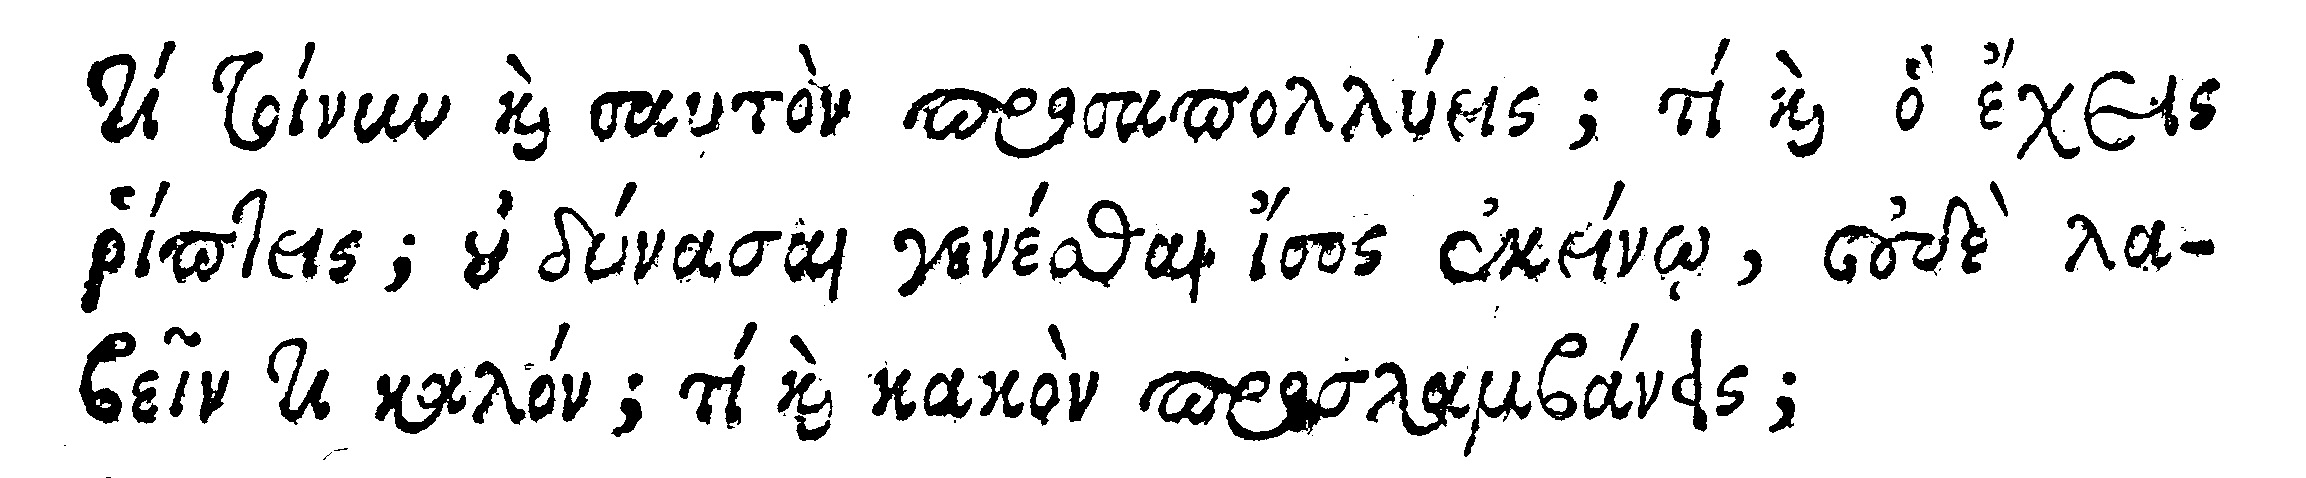 τί τοίνυν καὶ σαυτὸν προσαπολλύεις; τί καὶ ὃ ἔχεις
ῥίπτεις; οὐ δύνασαι γενέσθαι ἴσος ἐκείνῳ, οὐδὲ λα-
βεῖν τι καλόν; τί καὶ κακὸν προσλαμβάνεις;